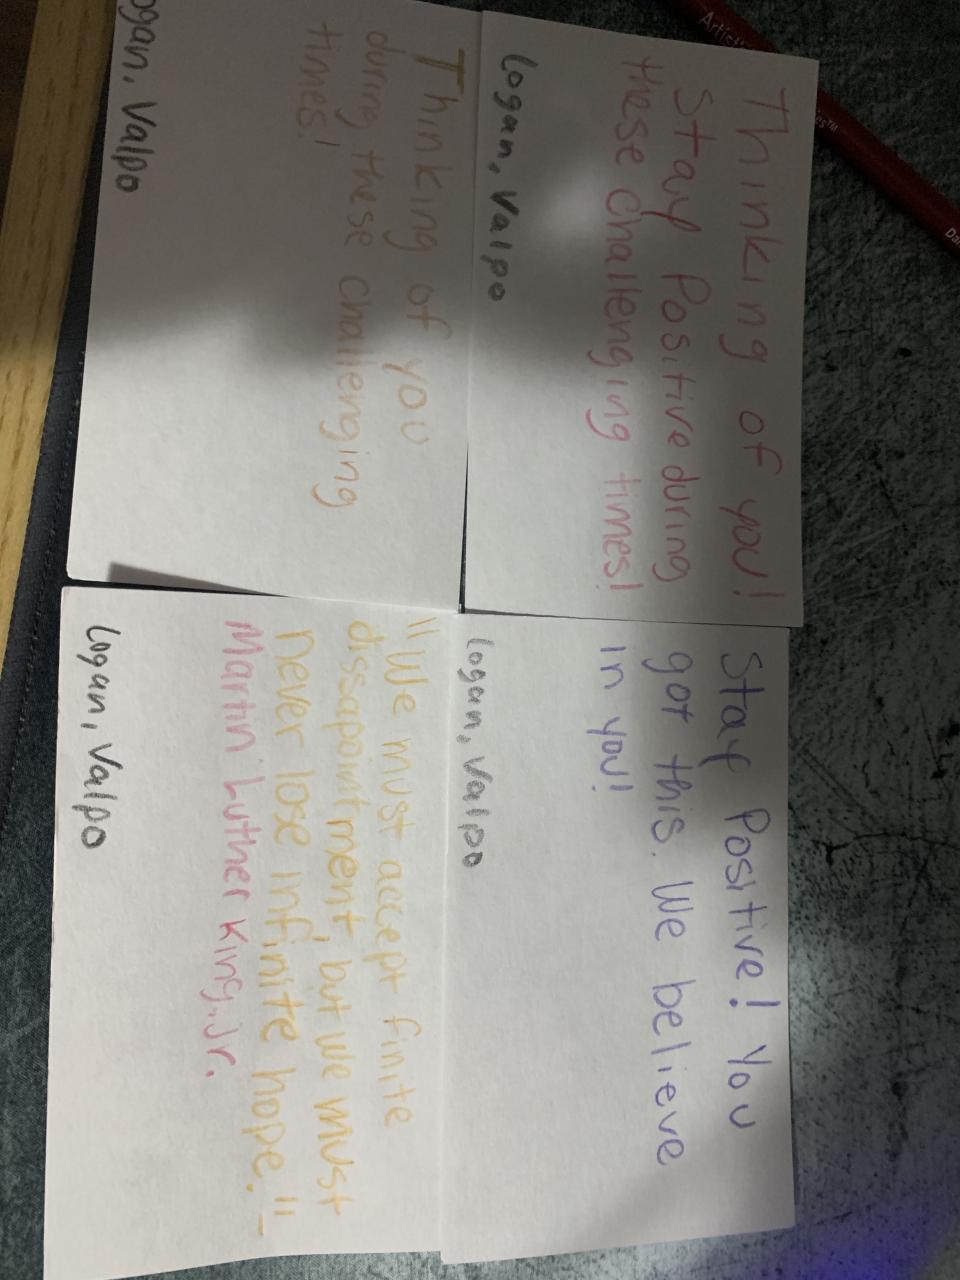 Thinking of you!
Stay Positive during
these challenging times!
Logan, Valpo
Stay Positive! You
got this. We believe
in you!
Logan, Valpo
Thinking of you
during these challenging
times!
ogan, Valpo
"We must accept finite
dissapointment, but we must
never lose infinite hope." -
Martin Luther King, Jr.
Logan, Valpo